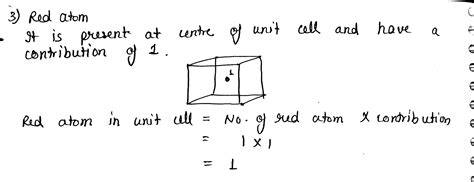 3) Red atom
It is present at centre of unit cell and have a
contribution of 1.
1
Red atom in unit cell = No. of red atom x contribution
= 1 x 1
= 1